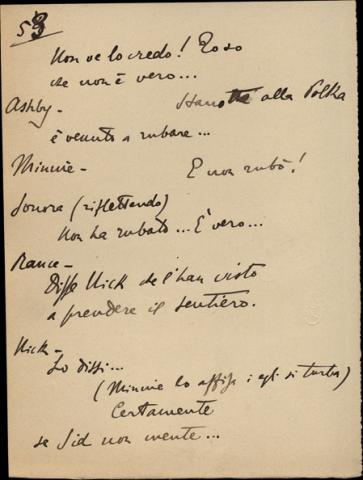 53
Non ve lo credo! Io so
che non è vero...
Ashby - Stanotte alla Polka
è venuto a rubare...
Minnie - E non rubò!
Sonora (riflettendo)
Non ha rubato... È vero...
Rance -
Disse Nick che l'han visto
a prendere il sentiero.
Nick -
Lo dissi...
(Minnie lo affisa; egli si turba)
Certamente
se Sid non mente...